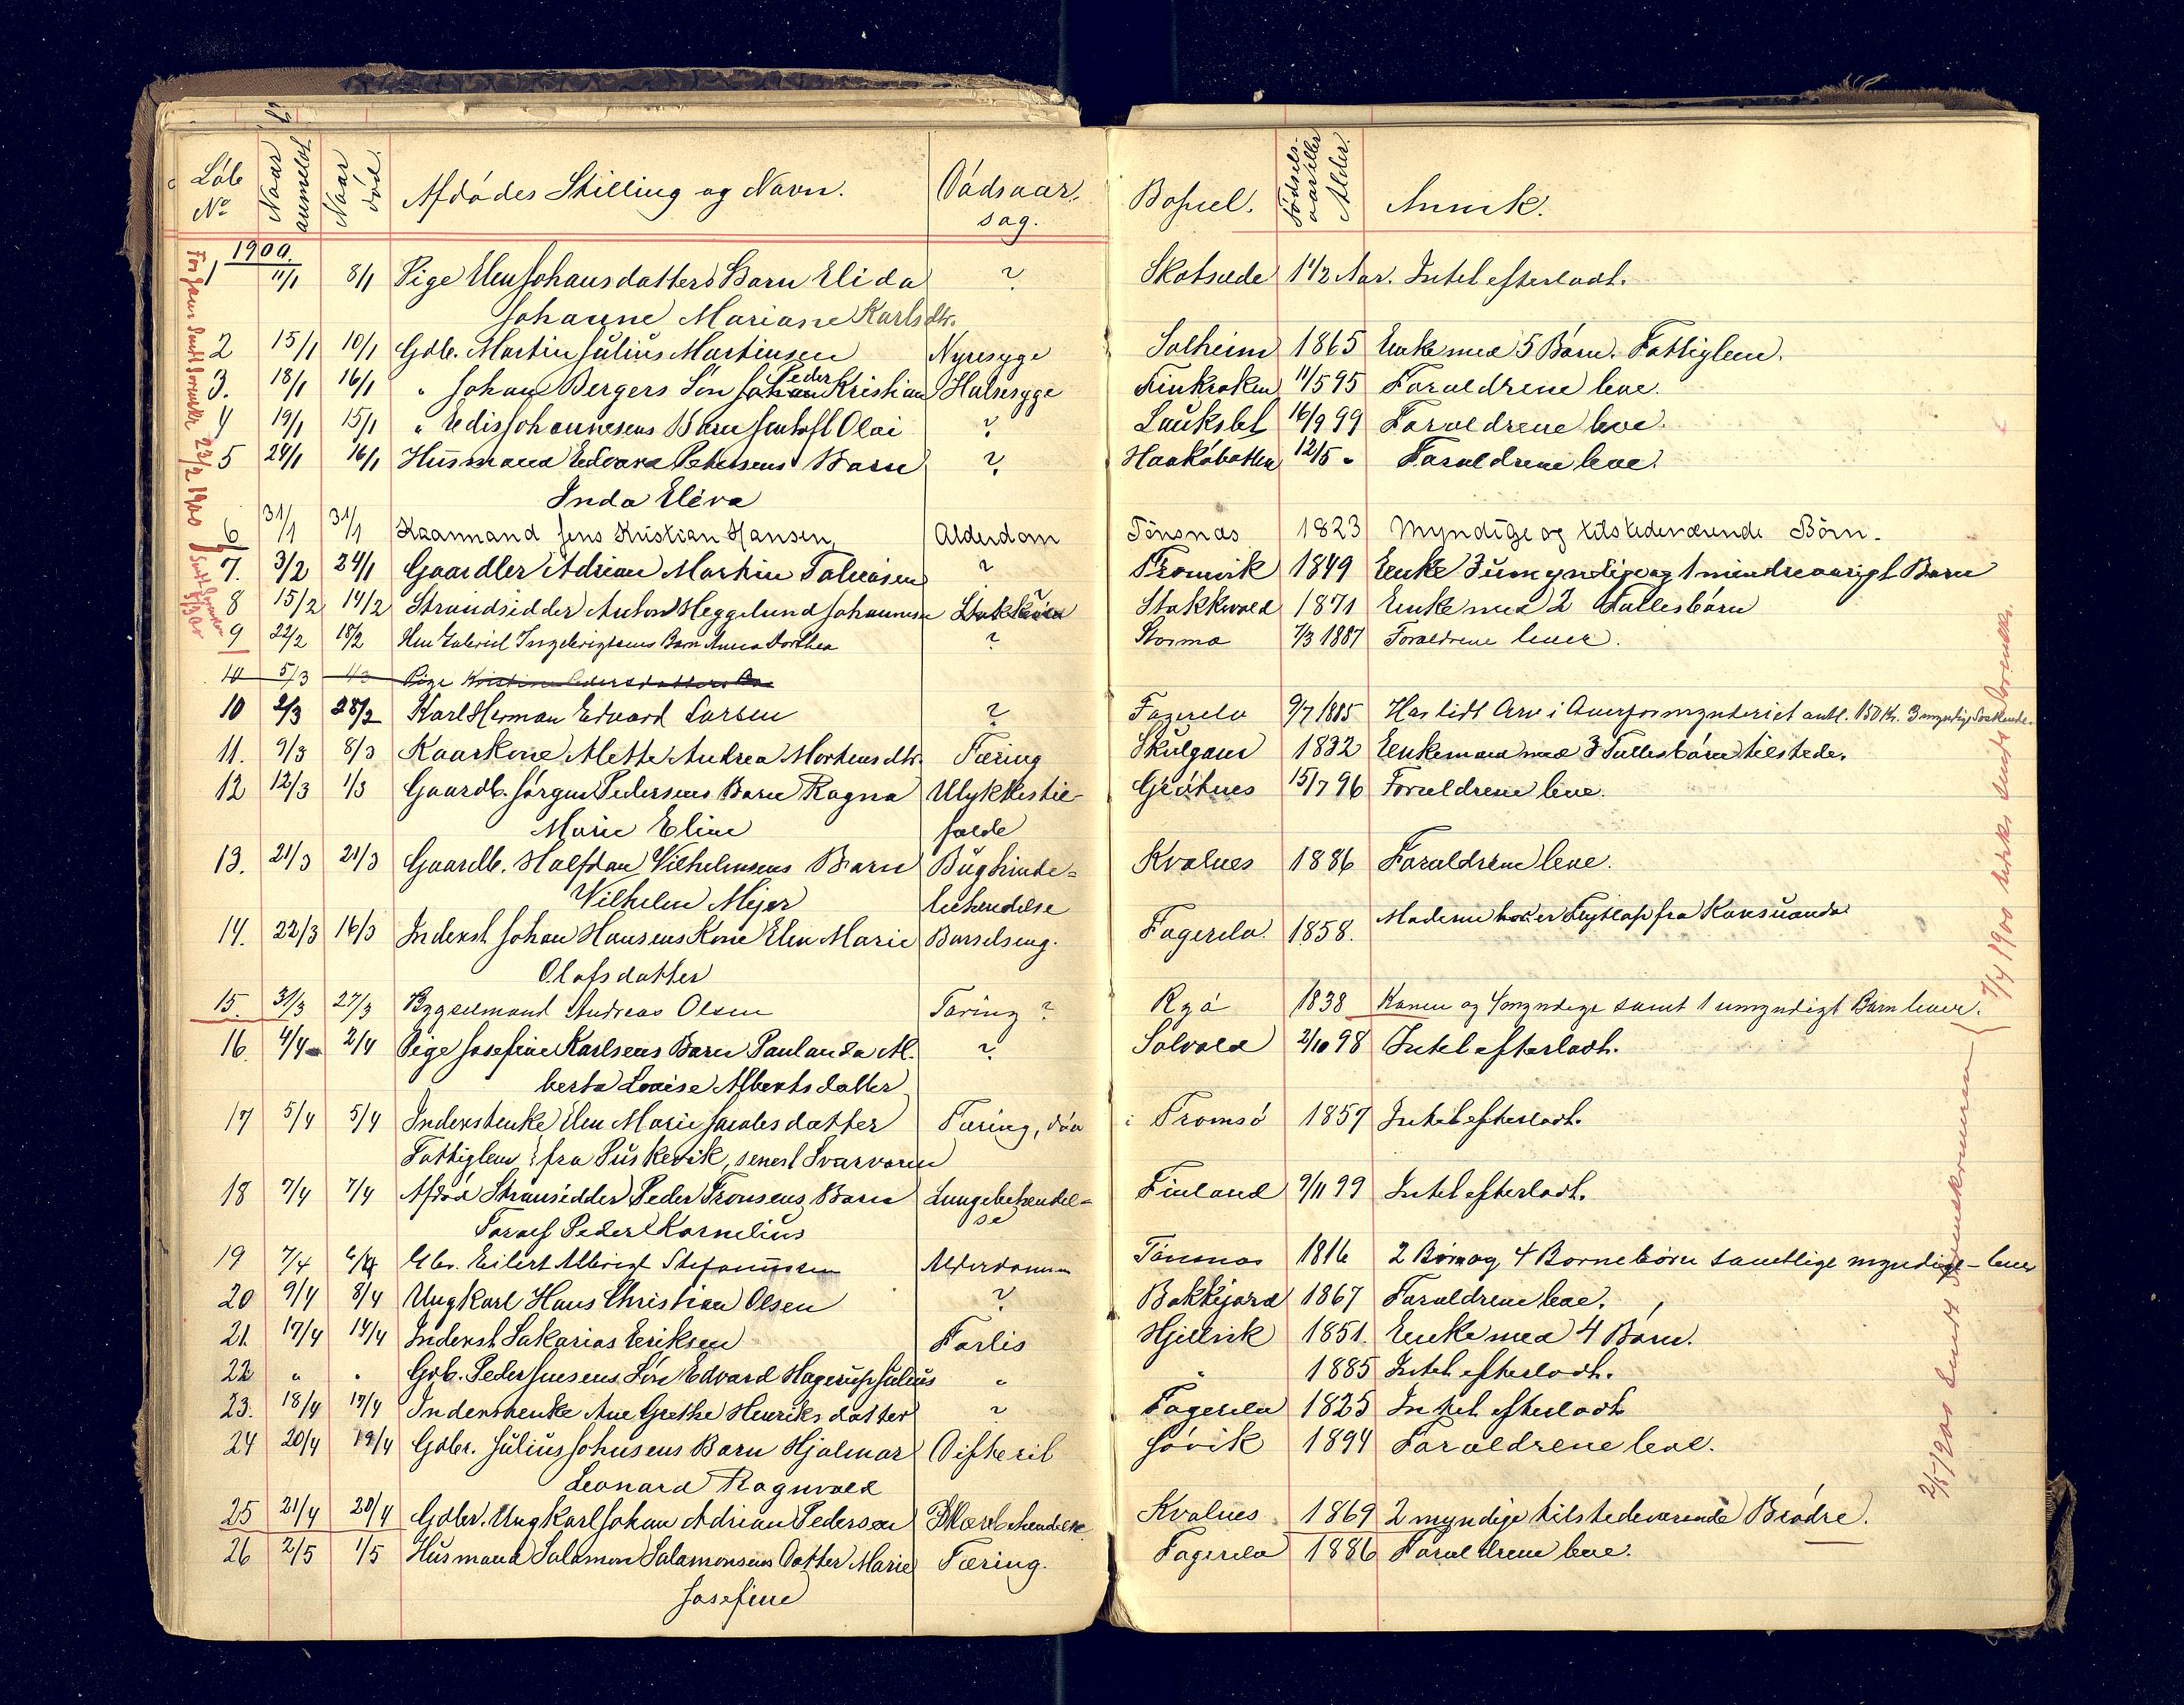 Løb No Naar anmeldt Naar død. Afdødes Stilling og Navn. Dødsaarsag. Bopæl. Fødselsaar eller Alder. Anmk.
1900.
1 11/1 8/1 Pige Elen Johansdatters Barn Elida ? Skotsæde 1 1/2 Aar. Intet efterladt.
Johanne Mariane Karlsdtr.
2 15/1 10/1 Gdb. Martin Julius Martinsen Nyresyge Solheim 1865 Enke med 5 Børn. Fattiglem.
3. 18/1 16/1 " Johan Bergers Søn Peder Kristian Halsesyge Finkroken 11/5 95 Forældrene leve.
4 19/1 15/1 " Edis Johannesens Barn Olai ? Laukslet 16/9 99 Forældrene leve.
5 24/1 16/1 Husmand Edvard Petersens Barn ? Haakøbotten 12/5 " Forældrene leve.
Inda Eléva
6 31/1 31/1 Kaarmand Jens Kristian Hansen Alderdom Tønsnæs 1823 Myndige og tilstedeværende Børn.
7. 3/2 24/1 Gaardbr Adrian Martin Tobiasen ? Tromvik 1849 Enke 3 umyndige og 1 mindreaarigt Barn
8 15/2 14/2 Strandsidder Anton Heggelund Johannesen Stakkvold 1871 Enke med 2 Fællesbørn
9 22/2 18/2 Hm Gabriel Ingebrigtsens Barn Anna Dorthea ? Stormo 7/3 1887 Forældrene lever.
10 5/3 Pige Kristine Pedersdatters Ba
10 2/3 28/2 Karl Herman Edvard Larsen ? Fagerelv 9/7 1885 Har lidt Arv i Overformynderiet antl. 150 Kr. 3 myndige Søskende.
11. 9/3 8/3 Kaarkone Mette Andrea Mortensdtr. Tæring Skulgam 1832 Enkemand med 3 Fællesbørn tilstede.
12 12/3 1/3 Gaardb. Jørgen Pedersens Barn Ragna Ulykkestil- Grøtnes 15/7 96 Forældrene leve.
Marie Eline fælde
13. 21/3 21/3 Gaardb. Halfdan Vilhelmsens Barn Bughinde= Kvalnes 1886 Forældrene leve.
Vilhelm Mejer betændelse
14. 22/3 16/3 Inderst Johan Hansens Kone Elen Marie Barselseng. Fagerelv. 1858. Manden er Flytlap fra Karesuando
Olafsdatter
15. 31/3 27/3 Bygselmand Andreas Olsen Tæring ? Ryø 1838 Konen og 4 myndige samt 1 umyndigt Barn lever.
16. 4/4 2/4 Pige Josefine Karlsens Barn Paulanda Al- ? Solvold 2/10 98 Intet efterladt.
berta Lovise Albertsdatter
17 5/4 5/4 Inderstenke Elen Marie Jacobsdatter Tæring, død i Tromsø 1857 Intet efterladt.
Fattiglem fra Buskevik, senest Svarvaren
18 7/4 7/4 Afdød Strandsidder Peder Tronsens Barn Lungebetændel= Finland 9/11 99 Intet efterladt.
Toralf Peder Kornelius se
19 7/4 6/4 Gbr. Eilert Albrigt Stefanussen Alderdommen Tønsnæs 1816 2 Børn og 4 Børnebørn samtlige myndige - lever
20 9/4 8/4 Ungkarl Hans Christian Olsen ? Bakkejord 1867 Forældrene leve.
21. 17/4 14/4 Inderst Sakarias Eriksen Forlis Hjellvik 1851. Enke med 4 Børn.
22 " " Gvb. Peder Jensens Søn Edvard Hagerup Julius " " 1885 Intet efterladt.
23. 18/4 17/4 Inderstenke Ane Grethe Henriksdatter ? Fagerelv 1825 Intet efterladt
24 20/4 19/4 Gdbr. Julius Johnsens Barn Hjalmar Difterit Søvik 1894 Forældrene leve.
Leonard Ragnvald
25 21/4 20/4 Gdbr. Ungkarl Johan Adrian Pedersen Kvalnes 1869 2 myndige tilstedeværende Brødre.
26 2/5 1/5 Husmand Salamon Salamonsens Datter Marie Tæring. Fagerelv 1886 Forældrene leve.
Josefine